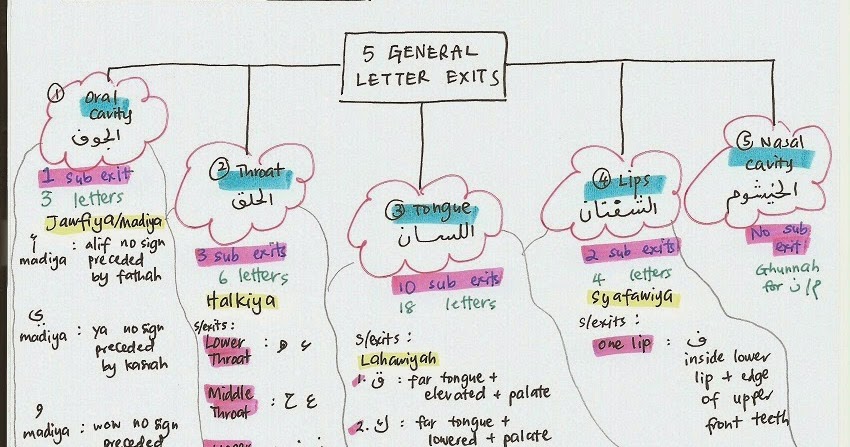 5 GENERAL
LETTER EXITS
①
Oral
Cavity
الجوف
1 sub exit
3 letters
Jawfiya/madiya
madiya : alif no sign
preceded
by fathah
ي
madiya : ya no sign
preceded
by kasrah
و
madiya : wow no sign
preceded
② Throat
الحلق
3 sub exits
6 letters
Halkiya
s/exits :
Lower
Throat : ء ه
Middle
Throat : ع ح
③ Tongue
اللسان
10 sub exits
18 letters
s/exits :
Lahawiyah
1. ق : far tongue +
elevated + palate
2. ك : far tongue +
lowered + palate
④ Lips
الشفتان
2 sub exits
4 letters
Syafawiya
s/exits :
one lip : ف
inside lower
lip + edge
of upper
front teeth
⑤ Nasal
Cavity
الخيشوم
No sub
exit
Ghunnah
for م/ن